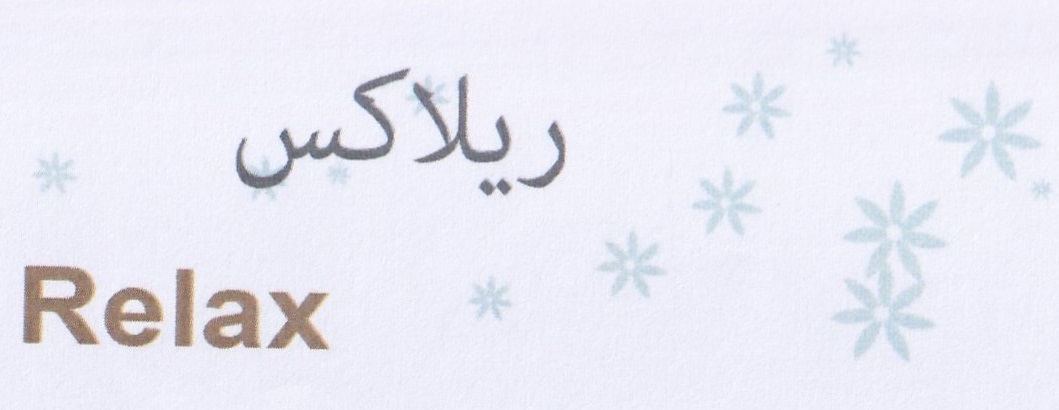 ريلاكس
Relax